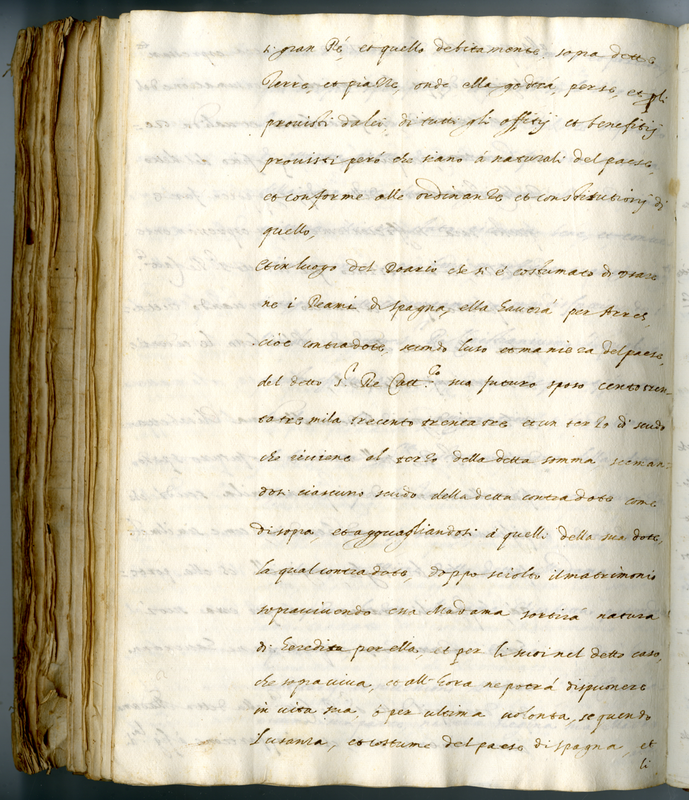 si gran Rè, et quello debitamente sopra dette
Terre, et piazze, onde ella goderà, per se, et gli
provisti da lei, di tutti gli offitij et benefitij
provisti però che siano à naturali del paese,
et conforme alle ordinanze et constitutionij di
quello,
Et in luogo del Doario che si è costumato di usare
ne i Reami di spagna, ella haverà per Arres,
cioè contradote, secondo l'uso et maniera del paese,
del detto S.r Re Catt.co suo futuro sposo cento tren-
ta tre mila trecento trenta tre et un terzo di scudo
che reviene al terzo della detta somma stiman-
dosi ciascuno scudo della detta contradote come
di sopra, et agguagliandosi à quelli della sua dote,
la qual contradote, doppo sciolto il matrimonio
sopravivendo essa Madama sortirà natura
di heredità per ella, et per li suoi nel detto caso,
che sopraviva, et all'hora ne potrà disponere
in vita sua, ò per ultima volontà, seguendo
l'usanza, et costume del paese di spagna, et
li